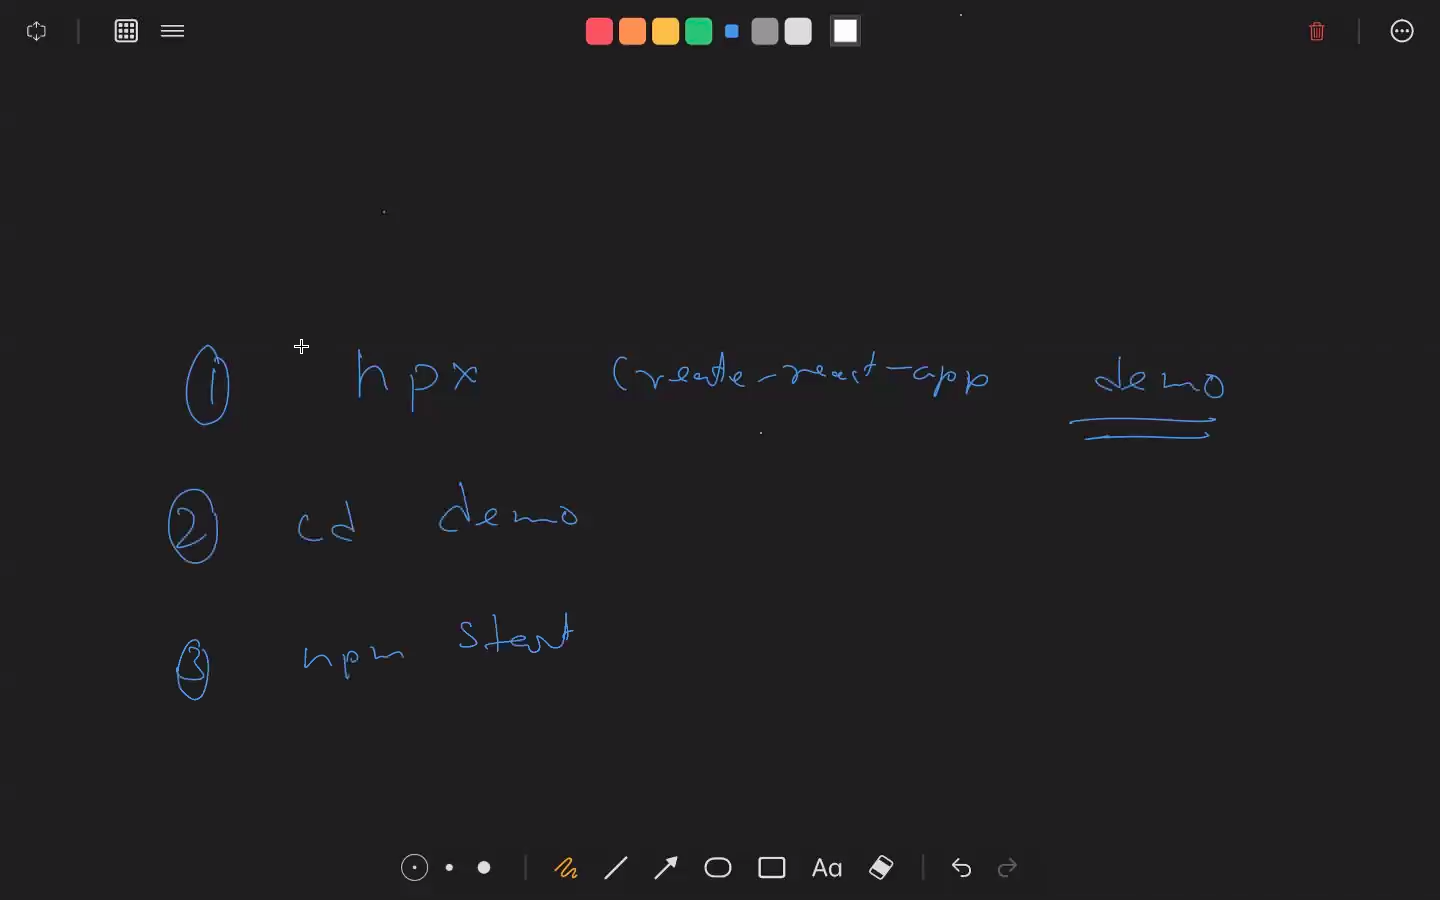 ① npx create-react-app demo
② cd demo
③ npm start
Aa